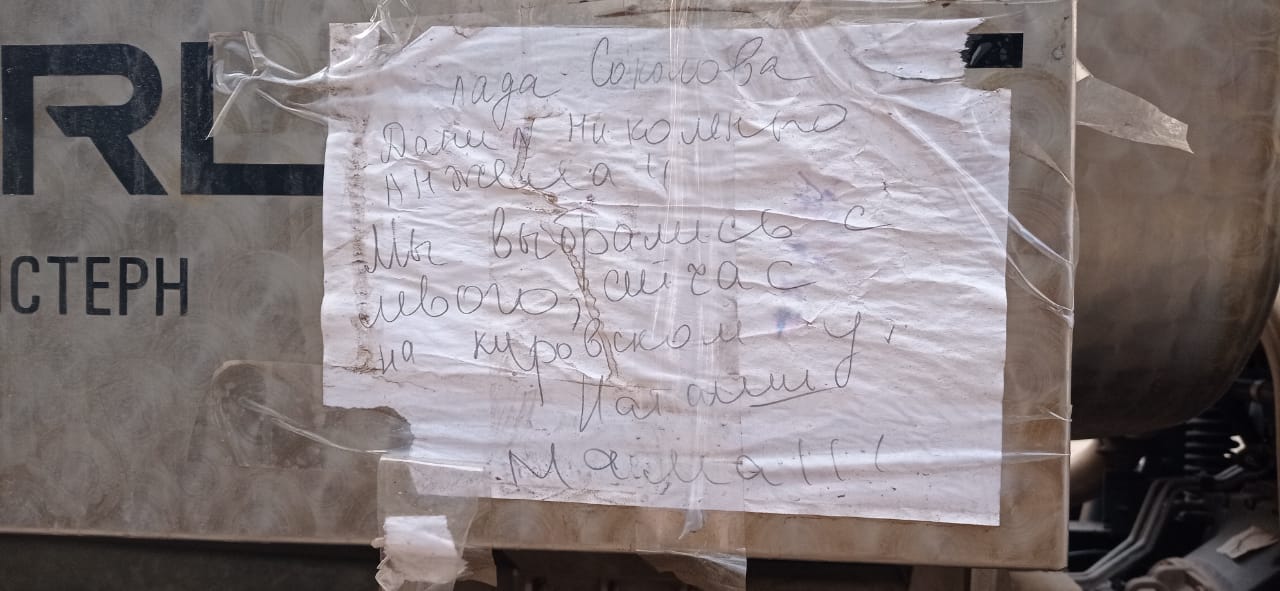 RL
ЦИСТЕРН
лада Соколова
Данил Николенко
Анжелка !!
Мы выбрались с
левого, сичас
на куровском у
Наталии
Мама !!!